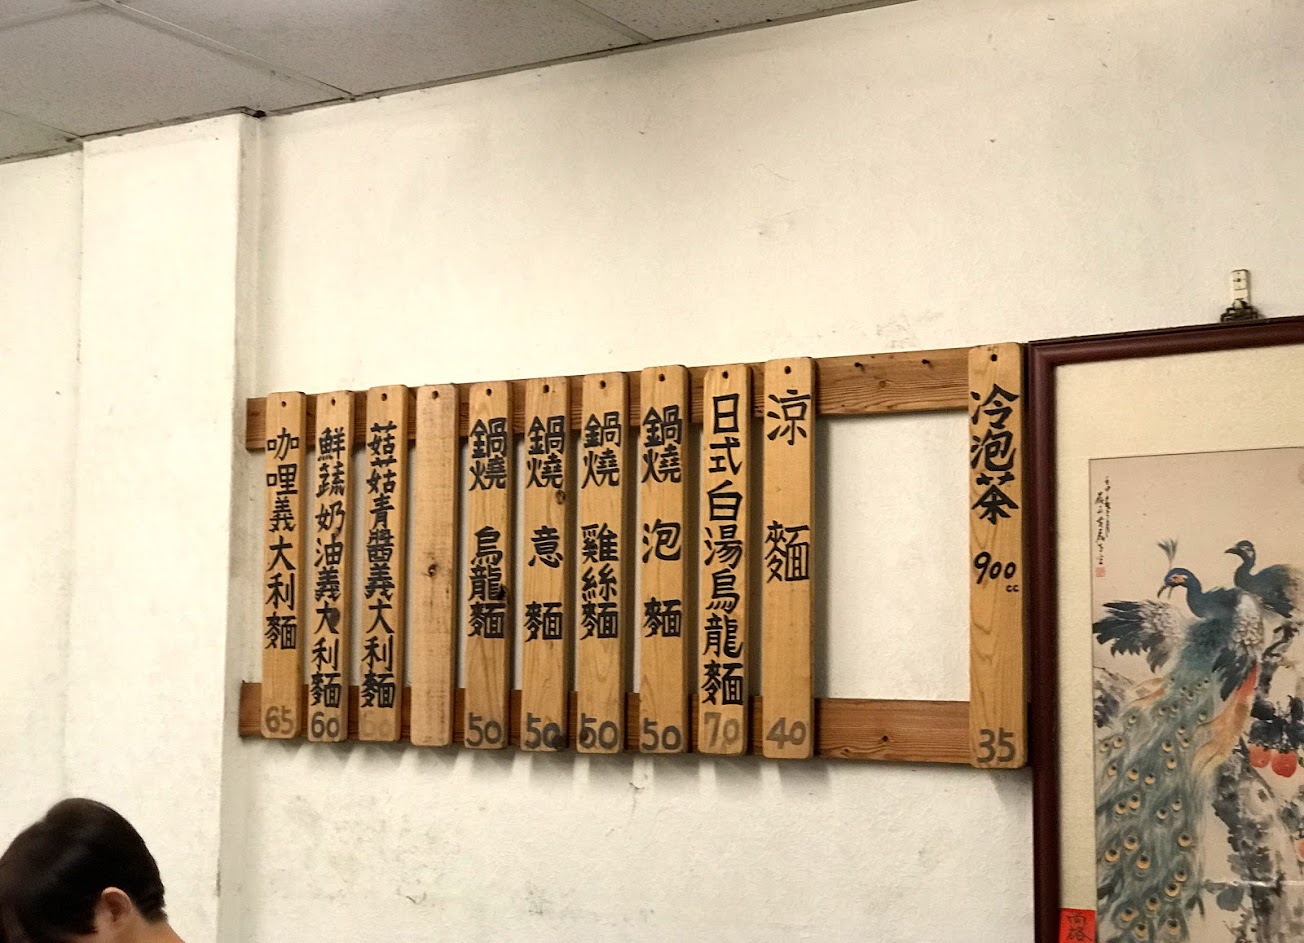 冷泡茶 900cc 35
涼麵 40
日式白湯烏龍麵 70
鍋燒泡麵 50
鍋燒雞絲麵 50
鍋燒意麵 50
鍋燒烏龍麵 50
菇菇青醬義大利麵 60
鮮蔬奶油義大利麵 60
咖哩義大利麵 65